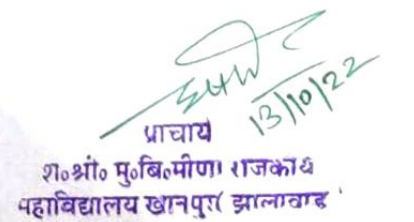 13/10/22
प्राचार्य
श०श्री० मु०बि०मीणा राजकीय
महाविद्यालय खानपुर( झालावाड